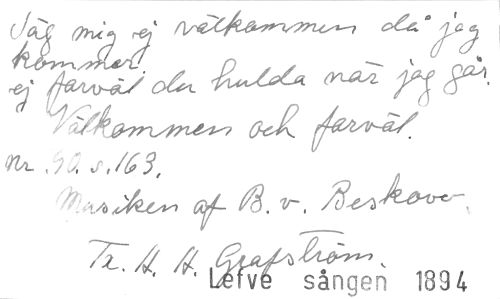 Säg mig ej välkommen då jag
kommer
ej farväl du hulda när jag går.
Välkommen och farväl.
nr. 90. s. 163.
Musiken af B. v. Beskow.
Tr. A. A. Grafström.
Lefve sången 1894